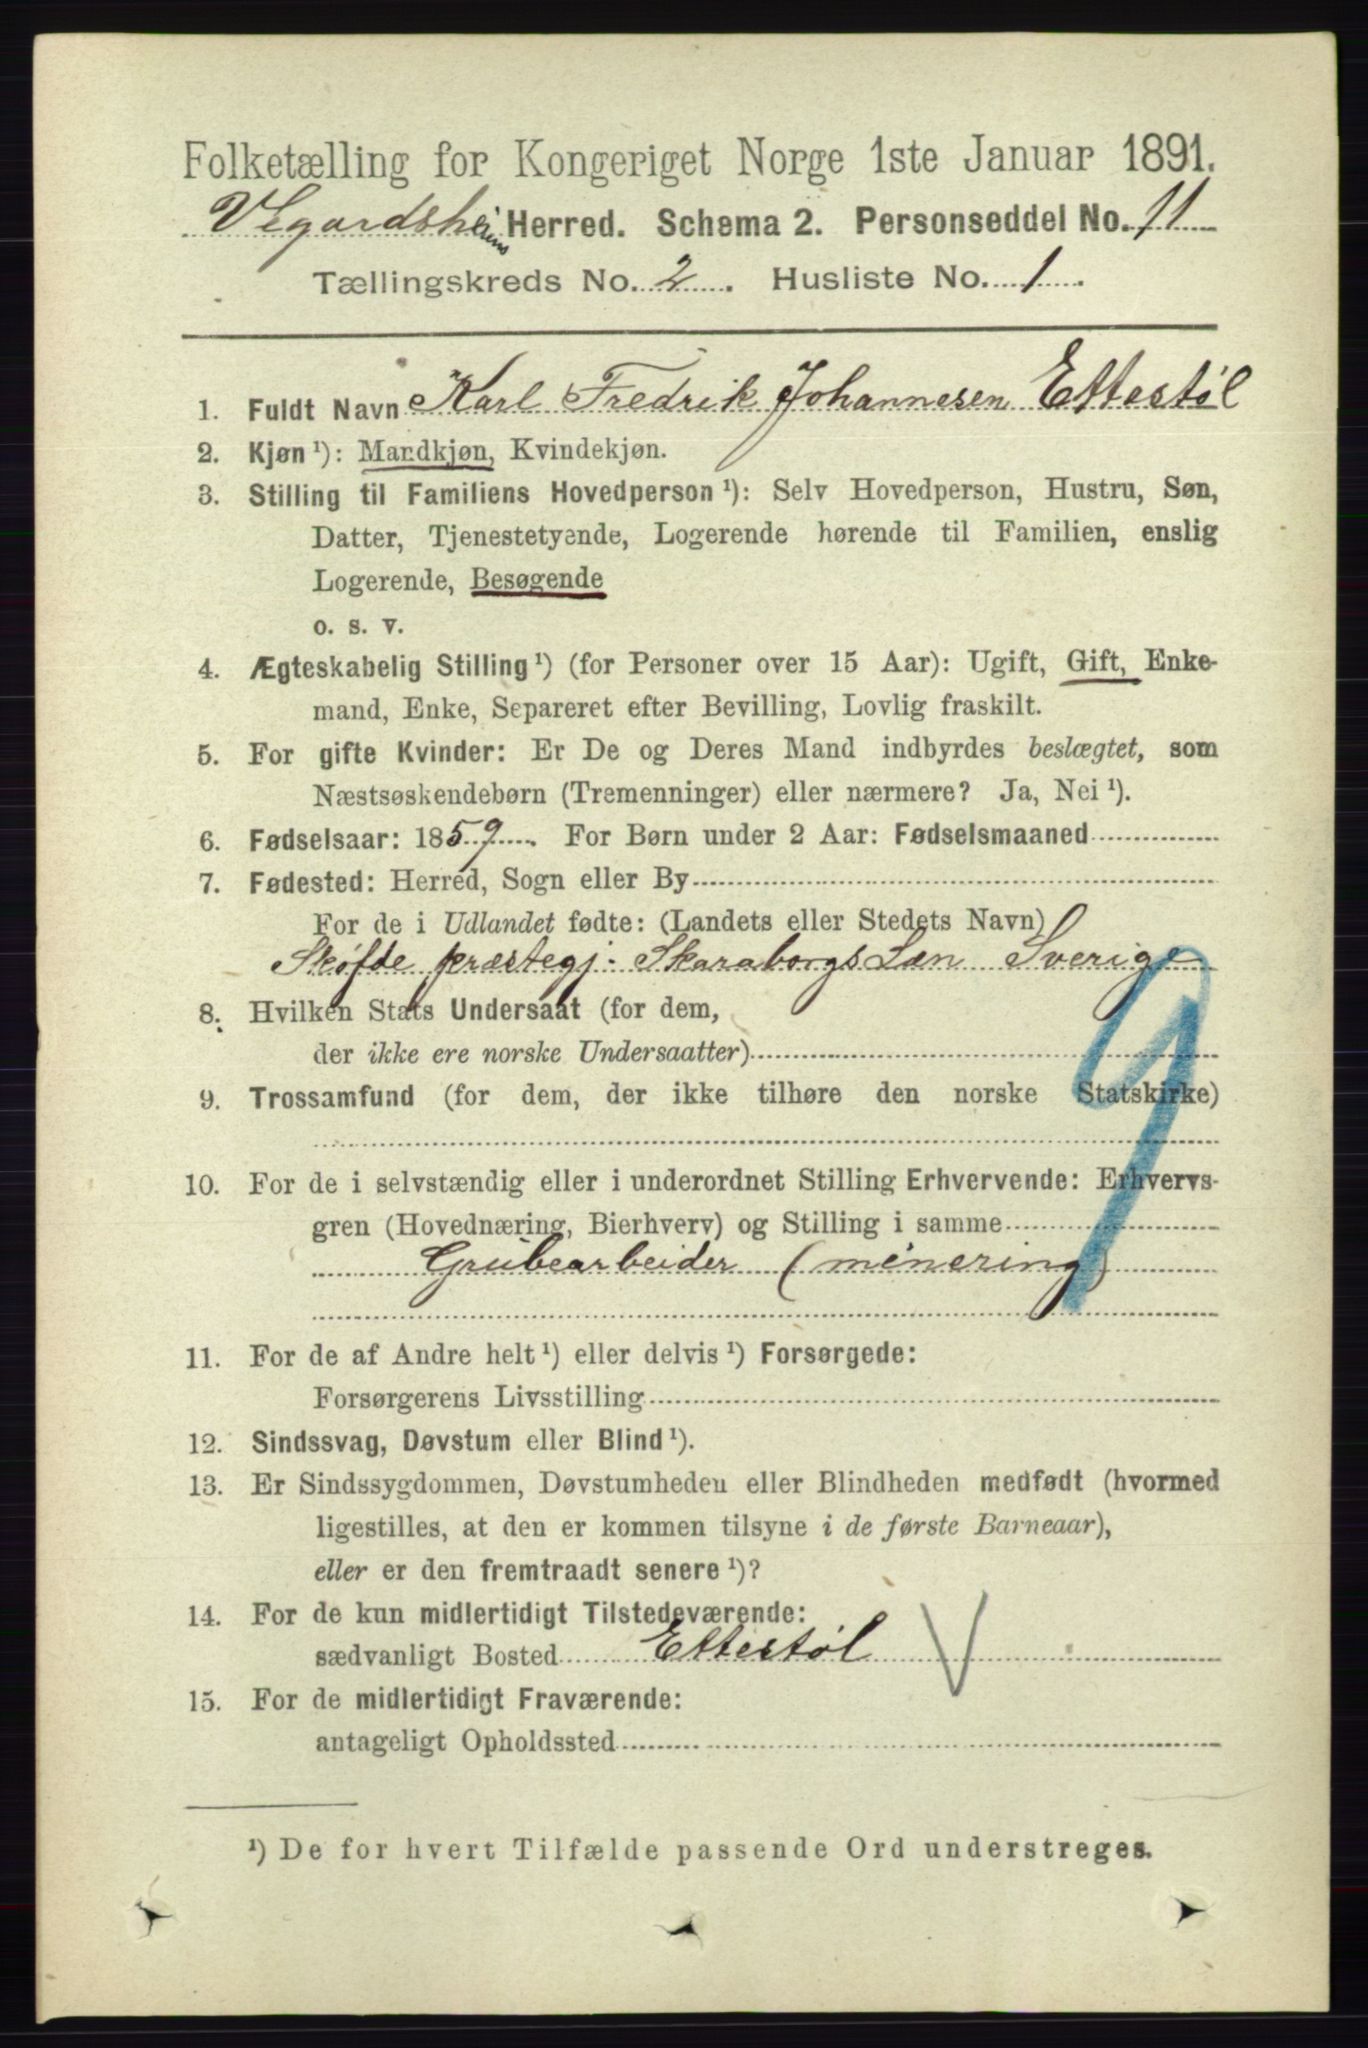 Folketælling for Kongeriget Norge 1ste Januar 1891.
Vegardsheiens Herred. Schema 2. Personseddel No. 11
Tællingskreds No. 2. Husliste No. 1.
1. Fuldt Navn Karl Fredrik Johannesen Ettestøl
2. Kjøn¹): Mandkjøn, Kvindekjøn.
3. Stilling til Familiens Hovedperson¹): Selv Hovedperson, Hustru, Søn,
Datter, Tjenestetyende, Logerende hørende til Familien, enslig
Logerende, Besøgende
o. s. v.
4. Ægteskabelig Stilling¹) (for Personer over 15 Aar): Ugift, Gift, Enke-
mand, Enke, Separeret efter Bevilling, Lovlig fraskilt.
5. For gifte Kvinder: Er De og Deres Mand indbyrdes beslægtet, som
Næstsøskendebørn (Tremenninger) eller nærmere? Ja, Nei¹).
6. Fødselsaar: 1859. For Børn under 2 Aar: Fødselsmaaned
7. Fødested: Herred, Sogn eller By
For de i Udlandet fødte: (Landets eller Stedets Navn)
Sköfde præstegj. Skaraborgs Læn Sverige
8. Hvilken Stats Undersaat (for dem,
der ikke ere norske Undersaatter)
9. Trossamfund (for dem, der ikke tilhøre den norske Statskirke)
9
10. For de i selvstændig eller i underordnet Stilling Erhvervende: Erhvervs-
gren (Hovednæring, Bierhverv) og Stilling i samme
Grubearbeider (minering)
11. For de af Andre helt¹) eller delvis¹) Forsørgede:
Forsørgerens Livsstilling
12. Sindssvag, Døvstum eller Blind¹).
13. Er Sindssygdommen, Døvstumheden eller Blindheden medfødt (hvormed
ligestilles, at den er kommen tilsyne i de første Barneaar),
eller er den fremtraadt senere¹)?
14. For de kun midlertidigt Tilstedeværende:
sædvanligt Bosted Ettestøl V
15. For de midlertidigt Fraværende:
antageligt Opholdssted
¹) De for hvert Tilfælde passende Ord understreges.